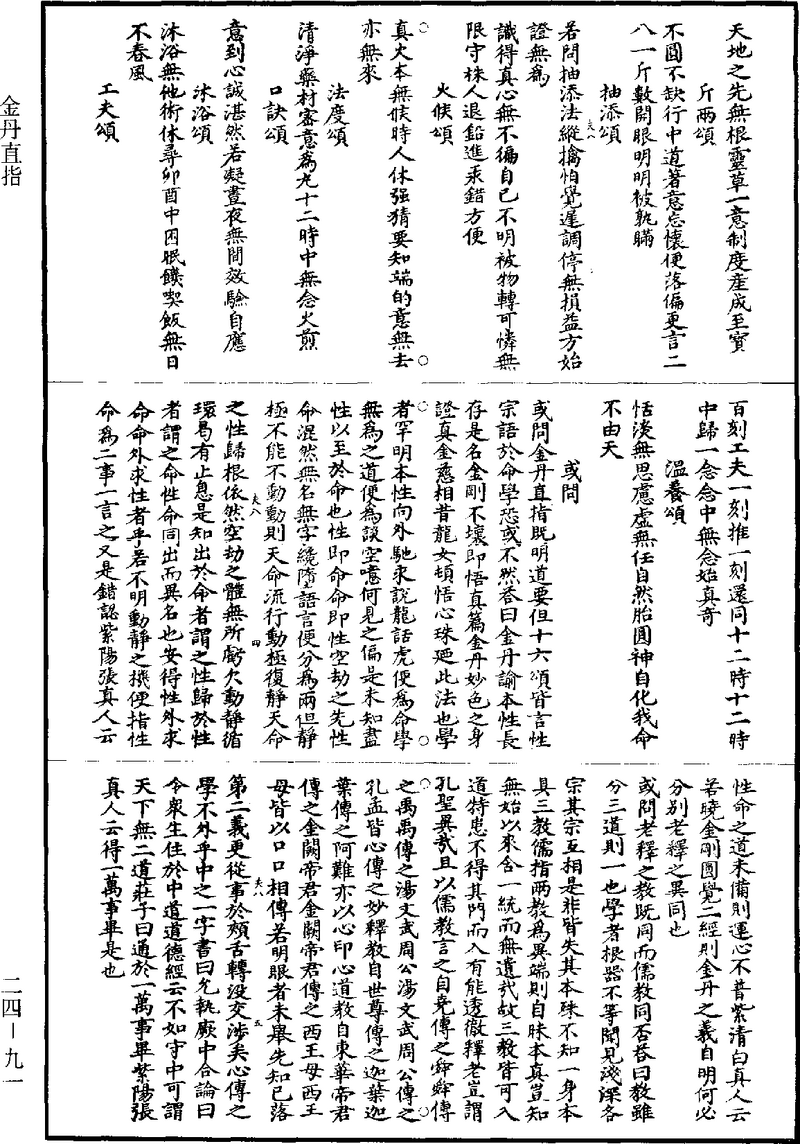 天地之先無根靈草一意制度産成至寶
斤兩頌
不圓不缺行中道著意忘懷便落偏更言二
八一斤數開眼明明被孰瞞
抽添頌
夫八
若問抽添法縱擒怕覺遲調停無損益方始
證無爲
識得真心無不徧自己不明被物轉可憐無
限守株人退鉛進汞錯方便
火候頌
真火本無候時人休强猜要知端的意無去
亦無來
法度頌
清淨藥材密意爲先十二時中無念火煎
口訣頌
意到心誠湛然若凝晝夜無間效驗自應
沐浴頌
沐浴無他術休尋卯酉中困眠饑喫飯無日
不春風
工夫頌
百刻工夫一刻推一刻還同十二時十二時
中歸一念念中無念始真奇
溫養頌
恬淡無思慮虛無任自然胎圓神自化我命
不由天
或問
或問金丹直指既明道要但十六頌皆言性
宗語於命學恐或不然答曰金丹諭本性長
存是名金剛不壞即悟真篇金丹妙色之身
證真金慈相昔龍女頓悟心珠迺此法也學
者罕明本性向外馳求說龍話虎便爲命學
無爲之道便爲談空噫何見之偏是未知盡
性以至於命也性即命命即性空劫之先性
命混然無名無字纔墮語言便分爲兩但靜
極不能不動動則天命流行動極復靜天命
夫八
四
之性歸根依然空劫之體無所虧欠動靜循
環曷有止息是知出於命者謂之性歸於性
者謂之命性命同出而異名也安得性外求
命命外求性者乎若不明動靜之機便指性
命爲二事一言之又是錯認紫陽張真人云
性命之道未備則運心不普紫清白真人云
若曉金剛圓覺二經則金丹之義自明何必
分別老釋之異同也
或問老釋之教既同而儒教同否答曰教雖
分三道則一也學者根器不等聞見淺深各
宗其宗互相是非皆失其本殊不知一身本
具三教儒指兩教爲異端則自昧本真豈知
無始以來含一統而無遺哉故三教皆可入
道特患不得其門而入有能透徹釋老豈謂
孔聖異哉且以儒教言之自堯傳之舜舜傳
之禹禹傳之湯文武周公湯文武周公傳之
孔孟皆心傳之妙釋教自世尊傳之迦葉迦
葉傳之阿難亦以心印心道教自東華帝君
傳之金闕帝君金闕帝君傳之西王母西王
母皆以口口相傳若明眼者未舉先知已落
夫八
五
第二義更從事於頰舌轉没交涉矣心傳之
學不外乎中之一字書曰允執厥中合論曰
令衆生住於中道道德經云不如守中可謂
天下無二道莊子曰通於一萬事畢紫陽張
真人云得一萬事畢是也
金丹直指
二四－九一